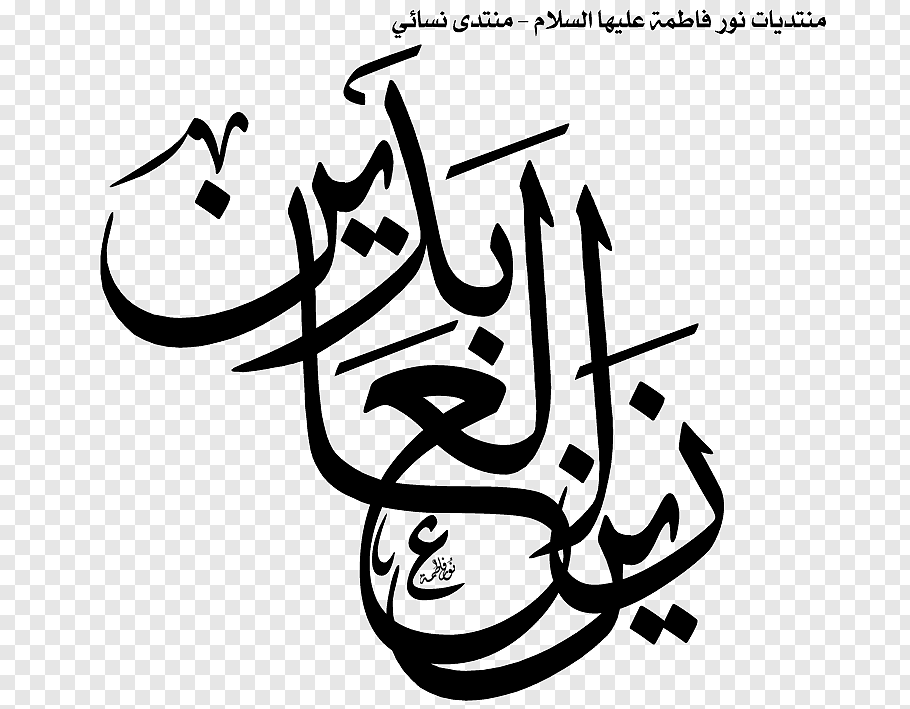 منتديات نور فاطمة عليها السلام - منتدى نسائي
زين العابدين
ع
نور فاطمة